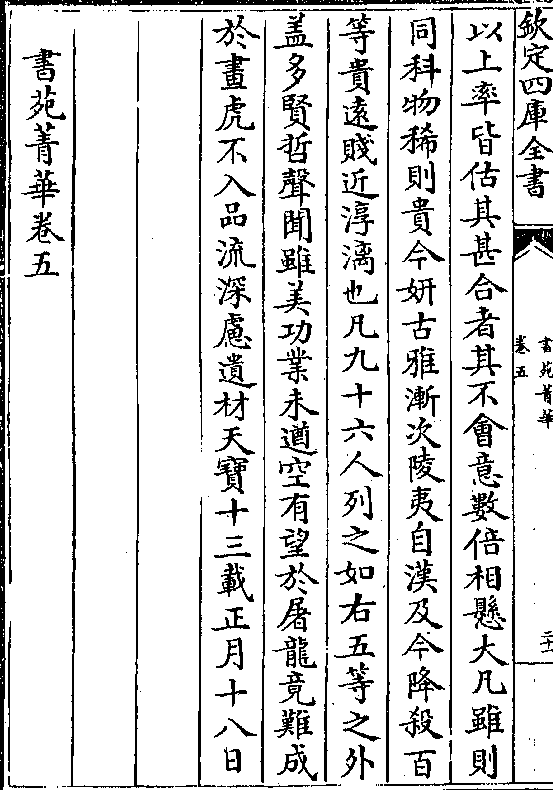 欽定四庫全書
書苑菁華
卷五
二十一
以上率皆估其甚合者其不會意數倍相懸大凡雖則
同科物稀則貴今妍古雅漸次陵夷自漢及今降殺百
等貴遠賤近淳漓也凡九十六人列之如右五等之外
盖多賢哲聲聞雖美功業未遒空有望於屠龍竟難成
於畫虎不入品流深慮遺材天寶十三載正月十八日
書苑菁華卷五